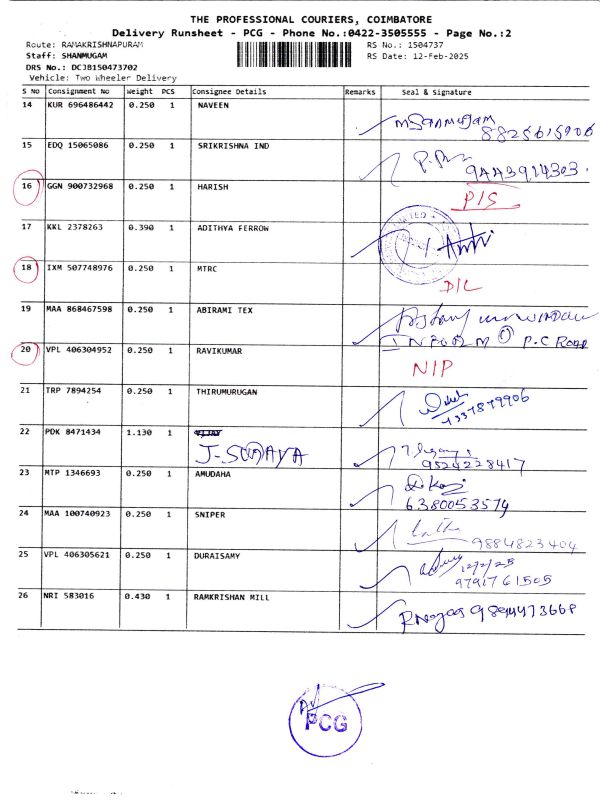 THE PROFESSIONAL COURIERS, COIMBATORE
Delivery Runsheet - PCG - Phone No.:0422-3505555 - Page No.:2
Route: RAMAKRISHNAPURAM RS No.: 1504737
Staff: SHANMUGAM RS Date: 12-Feb-2025
DRS No.: DCJB150473702
Vehicle: Two Wheeler Delivery
S No Consignment No Weight PCS Consignee Details Remarks Seal & Signature
14 KUR 696486442 0.250 1 NAVEEN
8825615906
15 EDQ 15065086 0.250 1 SRIKRISHNA IND
9443914303
16 GGN 900732968 0.250 1 HARISH P/S
17 KKL 2378263 0.390 1 ADITHYA FERROW
18 IXM 507748976 0.250 1 MTRC D/L
19 MAA 868467598 0.250 1 ABIRAMI TEX
P.C Road
20 VPL 406304952 0.250 1 RAVIKUMAR NIP
21 TRP 7894254 0.250 1 THIRUMURUGAN
22 PDK 8471434 1.130 1 VIJAY
9524228417
23 MTP 1346693 0.250 1 AMUDAHA
6380053574
24 MAA 100740923 0.250 1 SNIPER
9884823404
25 VPL 406305621 0.250 1 DURAISAMY
12/2/25
9791761505
26 NRI 583016 0.430 1 RAMKRISHAN MILL
PCG